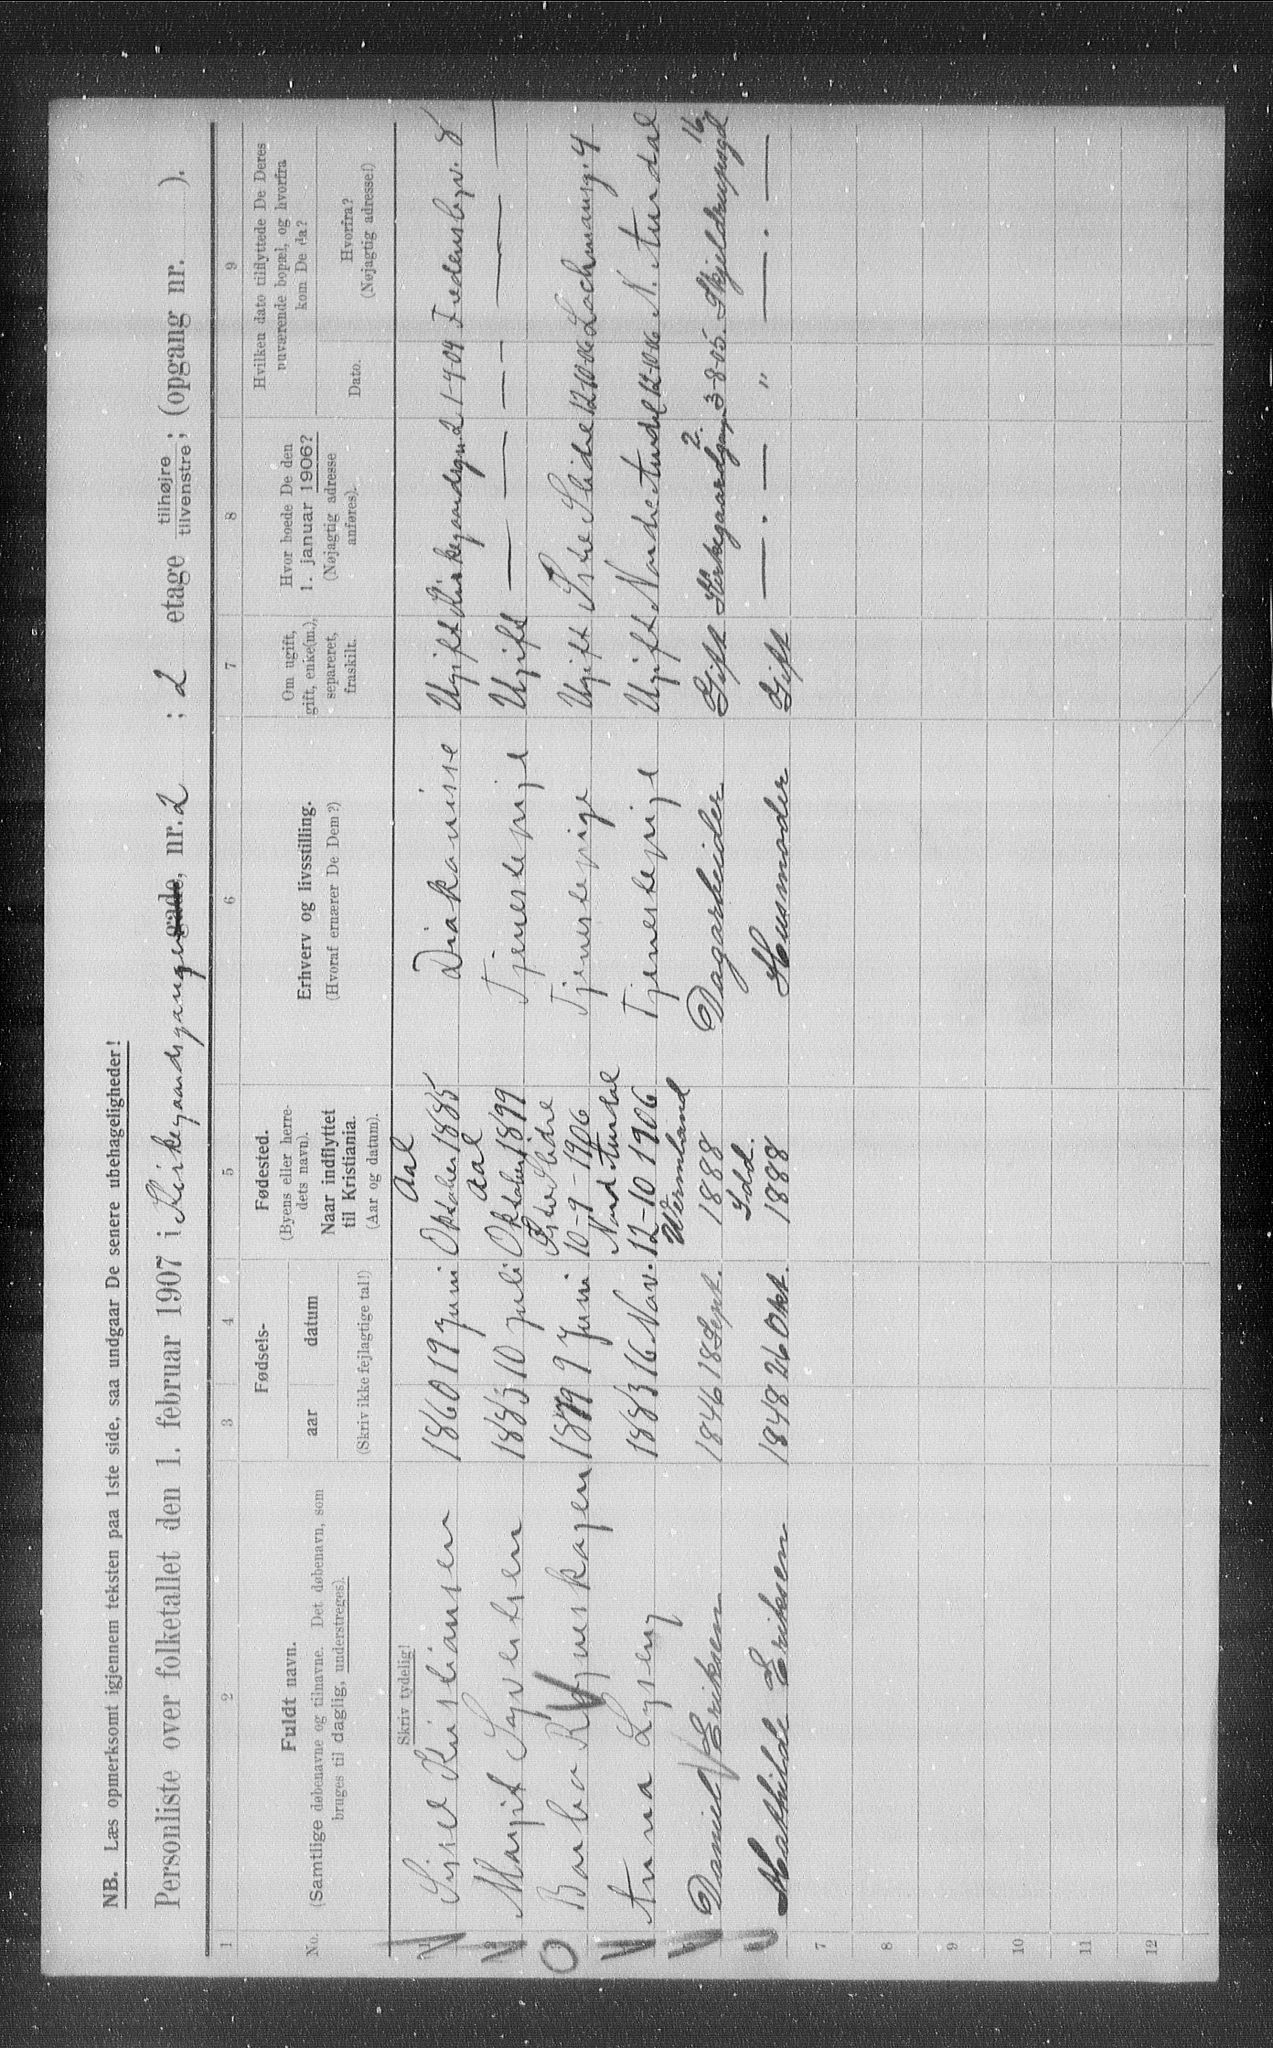 NB. Læs opmerksomt igjennem teksten paa 1ste side, saa undgaar De senere ubehageligheder!
Personliste over folketallet den 1. februar 1907 i Kirkegaardsgangen gade, nr. 2 ; 2 etage tilhøjre tilvenstre ; (opgang nr. ).
1 2 3 4 5 6 7 8 9
No.
Fuldt navn.
(Samtlige døbenavne og tilnavne. Det døbenavn, som
bruges til daglig, understreges).
Fødsels-
aar datum
(Skriv ikke fejlagtige tal!)
Fødested.
(Byens eller herre-
dets navn).
Naar indflyttet
til Kristiania.
(Aar og datum).
Erhverv og livsstilling.
(Hvoraf ernærer De Dem?)
Om ugift,
gift, enke(m.),
separeret,
fraskilt.
Hvor boede De den
1. januar 1906?
(Nøjagtig adresse
anføres).
Hvilken dato tilflyttede De Deres
nuværende bopæl, og hvorfra
kom De da?
Dato.
Hvorfra?
(Nøjagtig adresse!)
Skriv tydelig!
Aal
1 Sissel Kristiansen 1860 19 Juni Oktober 1885 Diakonisse Ugift Kirkegaardsgand 2 1-4 04 Fredensbgv. 8
Aal
2 Margit Syvertsen 1883 10 Juli Oktober 1899 Tjenestepige Ugift — — — — —
Østre Slidre
3 Barbra 1879 9 Juni 10-9-1906 Tjenestepige Ugift Østre Slidre 12-10-06 Lachmansg. 4
Nord Aurdal
4 Anna 1883 16 Nov. 12-10 1906 Tjenestepige Ugift Nordre Aurdal 12-10-06 N. Aurdal
Wermland
5 Daniel Eriksen 1846 18 Sept. 1888 Dagarbeider Gift Kirkegaardgang 2. 3-8-05. Skjeldrupsgd 16.
Idd.
6 Mathilde Eriksen 1848 26 Okt. 1888 Husmoder Gift — . — " — . —
7
8
9
10
11
12